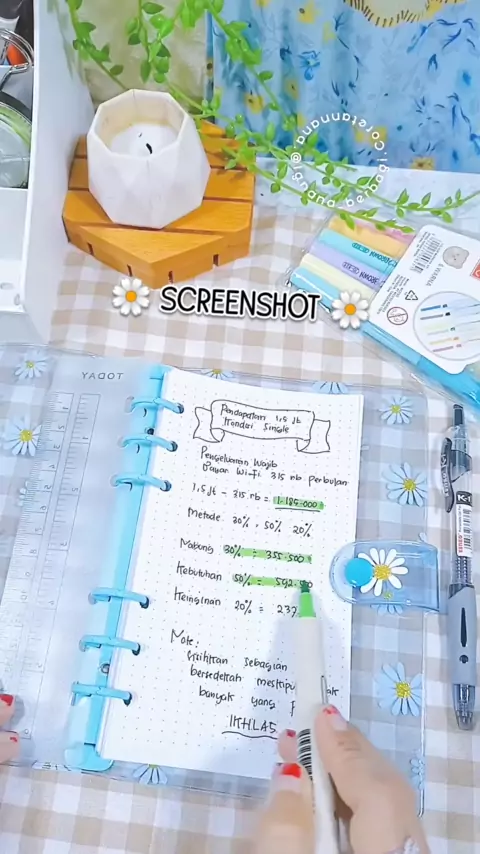 @gnana_berbagi.Coretannana
BROWN GEXEL
SCREENSHOT
TODAY
Pendapatan 1,5 jt
Kondisi Single
Pengeluaran Wajib
Bayar Wi-Fi 315 rb perbulan
1,5 jt - 315 rb = 1.185.000
Metode 30% 50% 20%
Nabung 30% = 355.500
Kebutuhan 50% = 592.500
Keinginan 20% = 237
Note:
Sisihkan sebagian
bersedekah meskipu ak
banyak yang p
IKHLAS
K-1